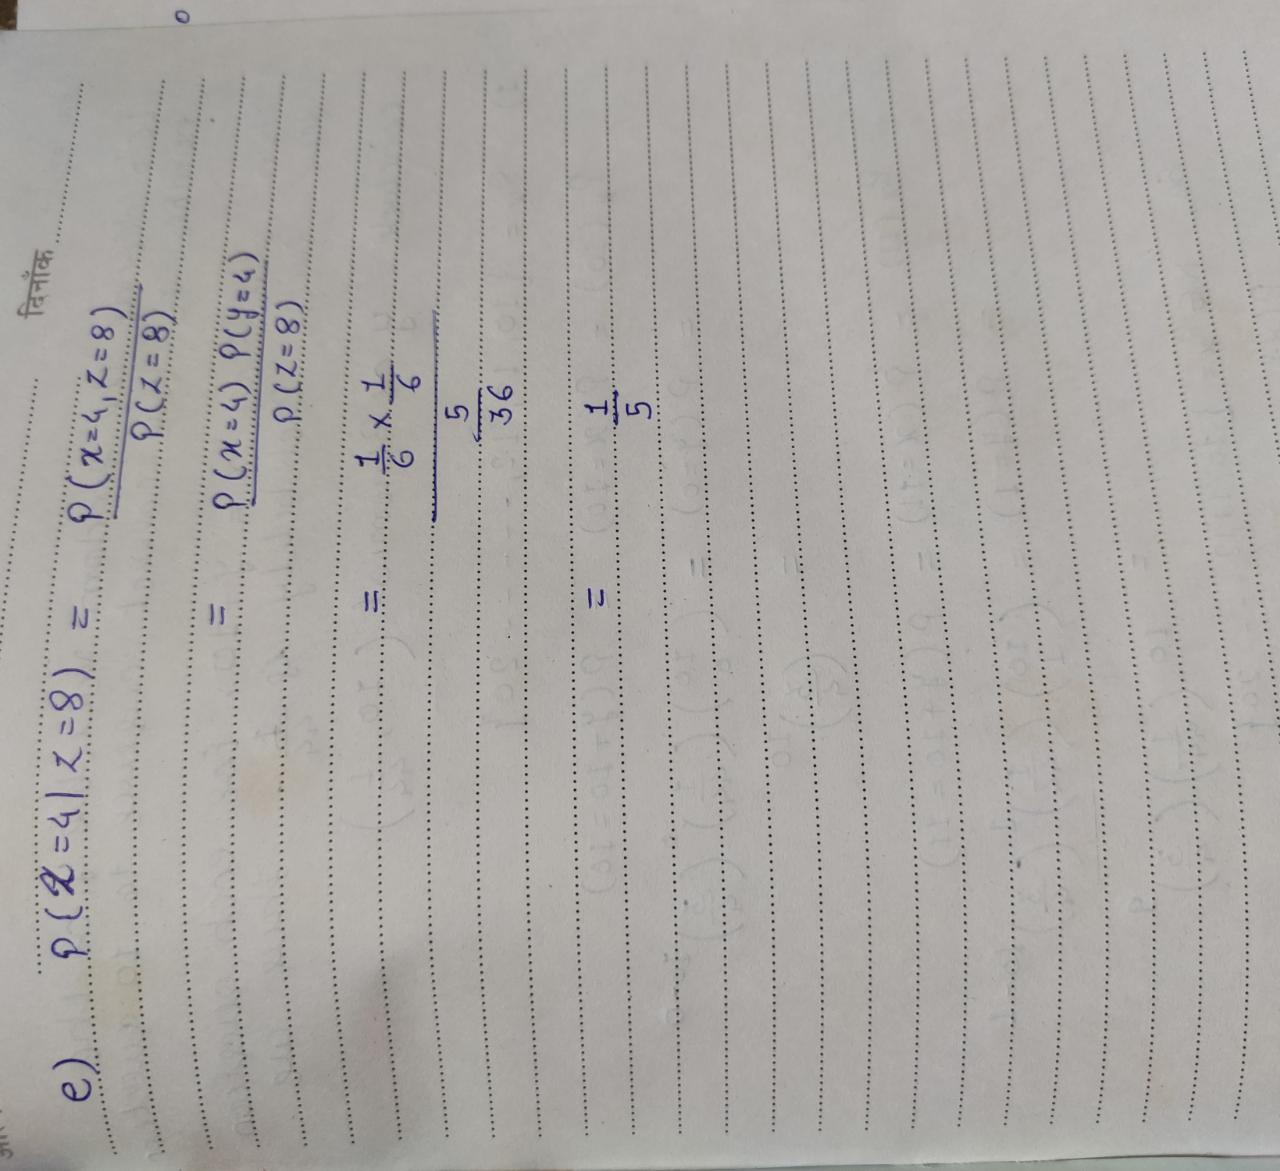 दिनाँक
e) P(X=4 | Z=8) = P(x=4, Z=8) / P(Z=8)
= P(x=4) P(y=4) / P(Z=8)
= 1/6 × 1/6 / 5/36
= 1/5